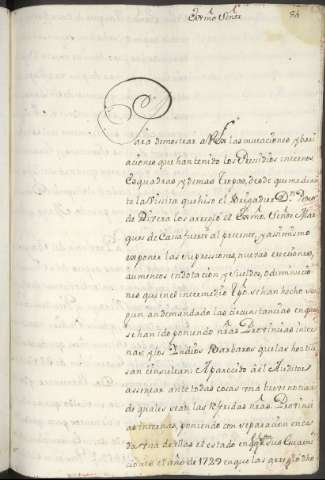 Exmo Señor
Para demostrar a V.E. las mutaciones y vari
aciones que han tenido los Presidios internos
Esquadras y demas Tropas, desde que media n
te la Visita que hiso el Brigadier Dn. Pedro
de Rivera los arreglò el Exmo. Señor Mar
ques de Casafuerte al presente, y asimismo
exponer las supresiones, nuevas erecciones,
aumentos en dotacion y sueldos, ò diminucio
nes que en el intermedio tpò. se han hecho se
gun an demandado las circunstancias en que
se han ido poniendo nras. Provincias inter
nas, y los Indios Barbaros que las hostili
san
ha parecido al Auditor
ante todas cosas una breve noticia
de quales sean las referidas nras. Provinci
as Internas, poniendo con separacion en ca
da una de ellas el estado en que sus Guarni
ciones el año de 1729 en que las arreglò dho